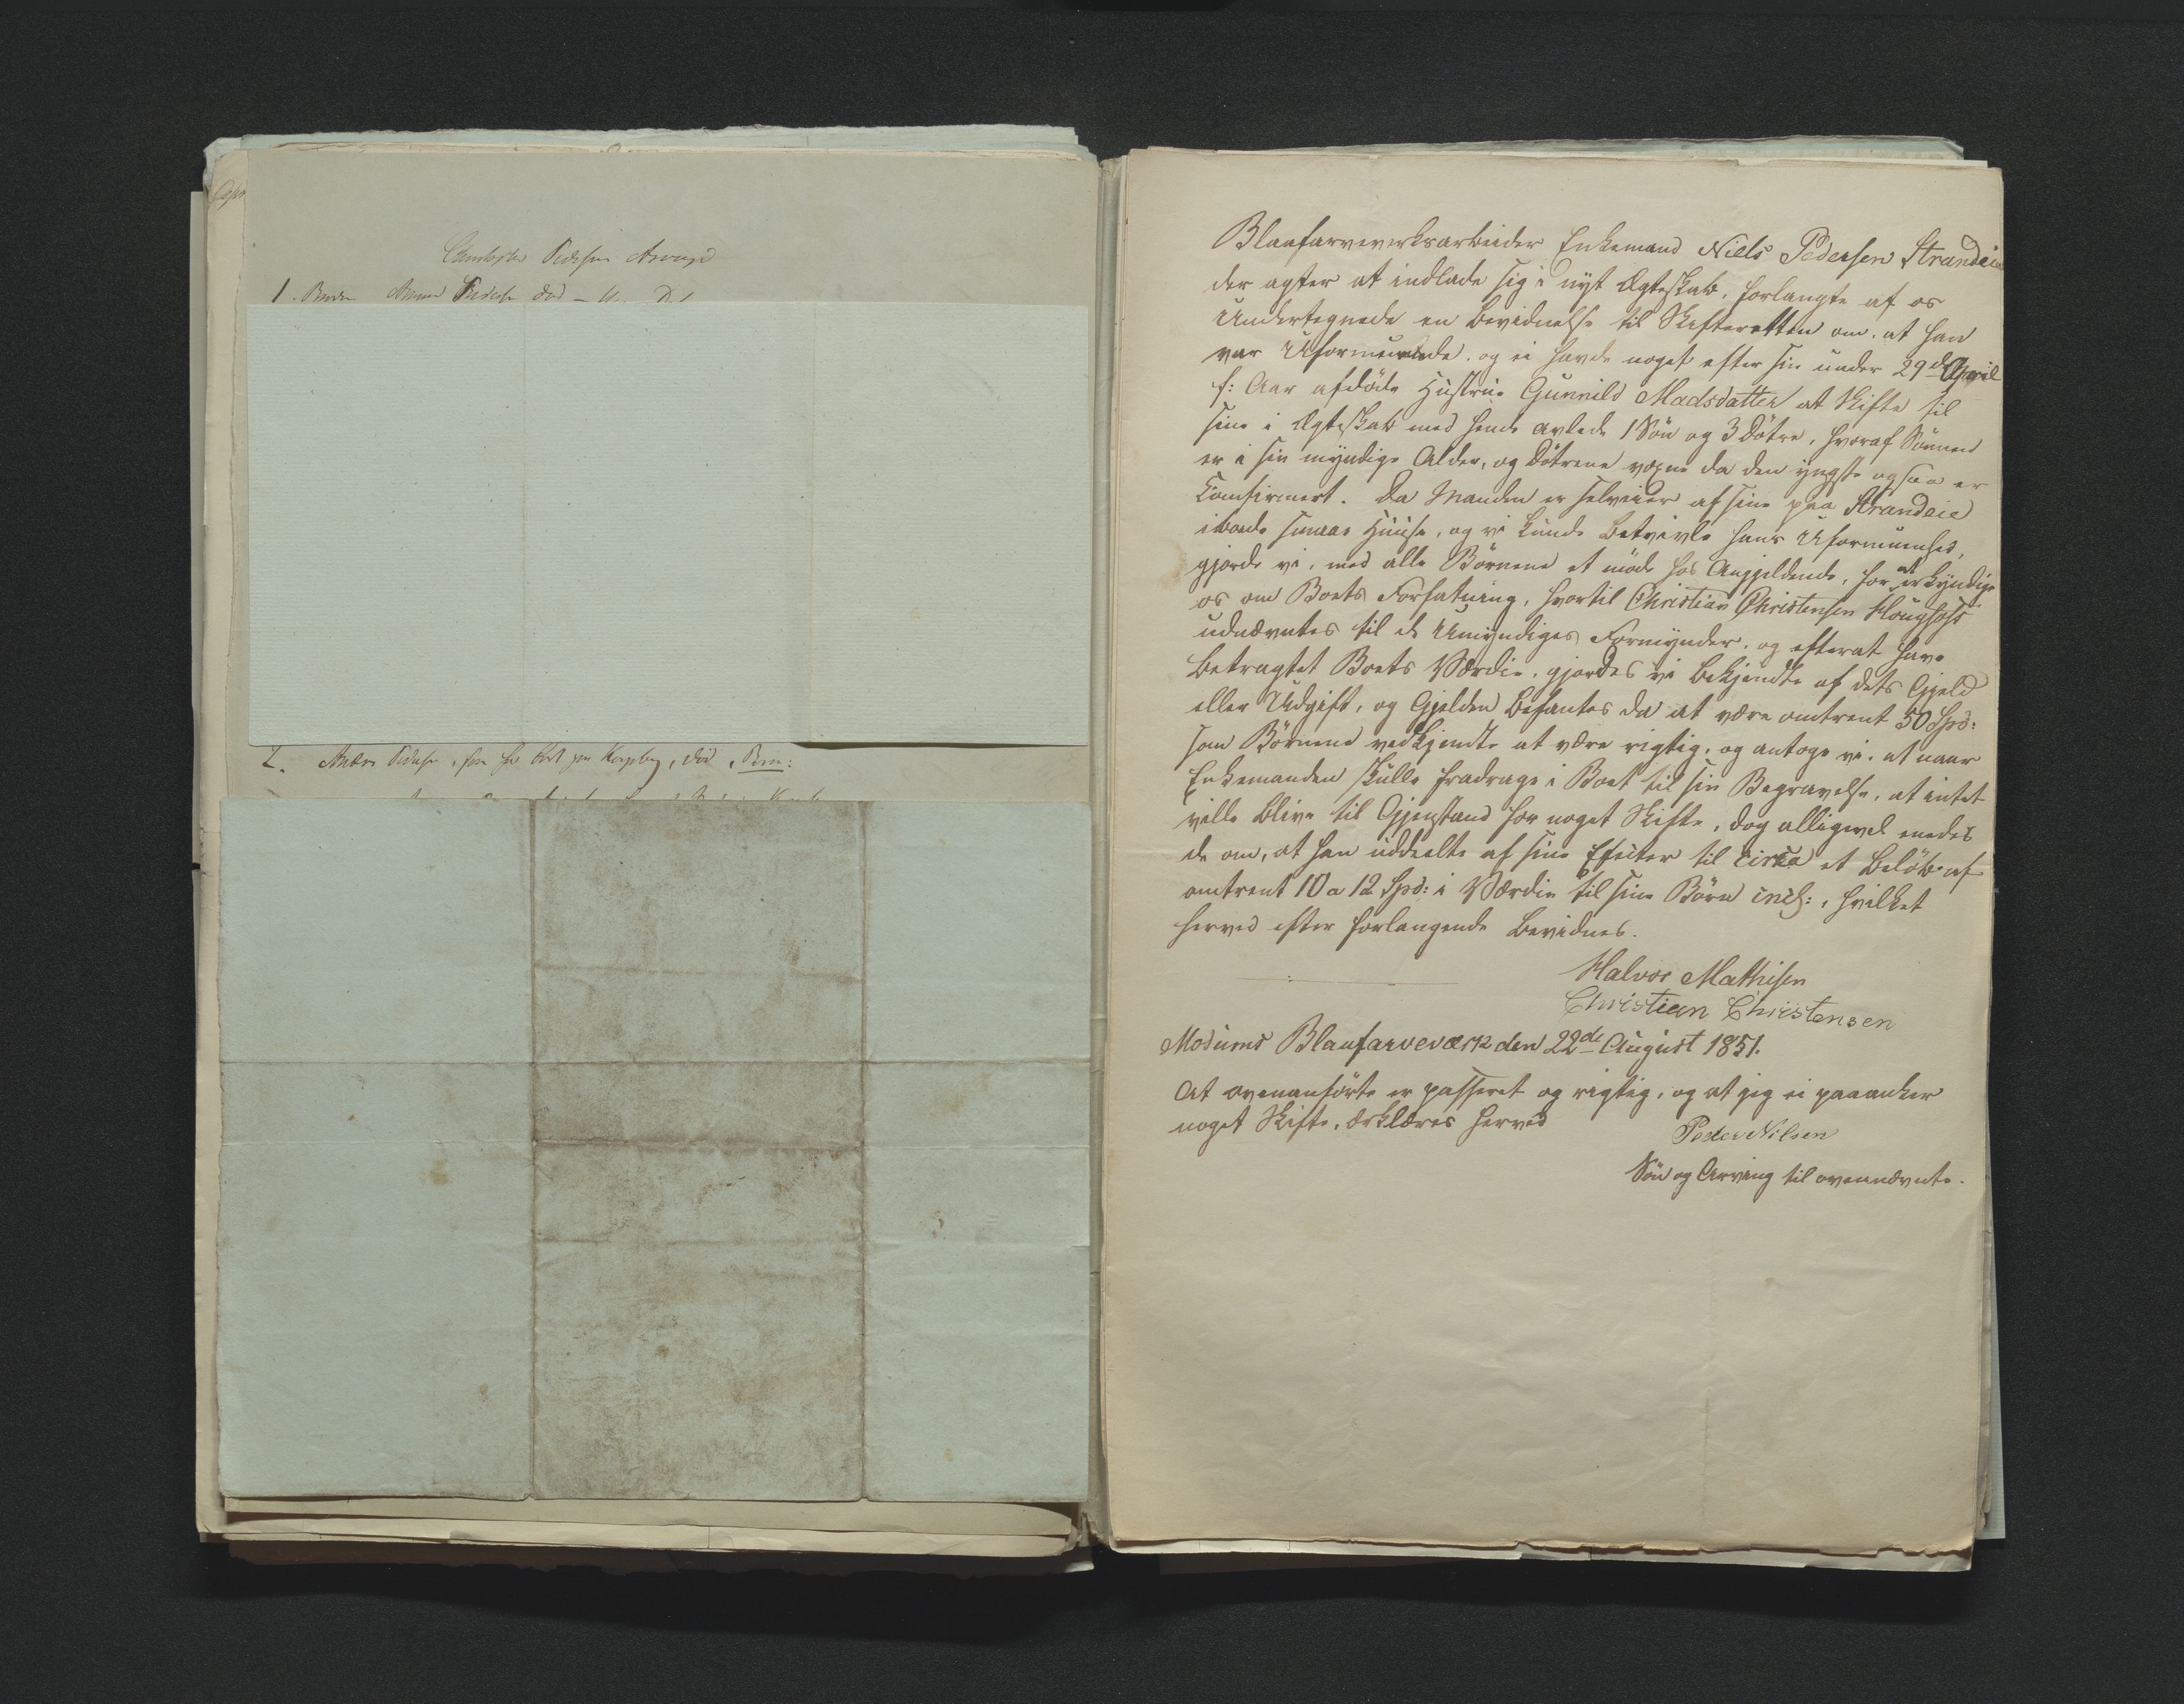 Pedersens
1. Pedersen død
2. Pedersen, død, Børn:
Blaafarveverksarbeider Enkemand Niels Pedersen Strandeie
der agter at indlade sig i nyt Ægteskab, forlangte af os
Undertegnede en Bevidnelse til Skifteretten om, at han
var Uformuende, og ei havde noget efter sin under 29de April
f: Aar afdöde Hustrue Gunnild Madsdatter at skifte til
sine i Ægteskab med hende avlede 1 Sön og 3 Dötre, hvoraf Sönnen
er i sin myndige Alder, og Dötrene voxne da den yngste ogsaa er
Comfirmert. Da Manden er Selveier af sine paa Strandeie
iboende smaae Huuse, og vi kunde betvivle hans Uformuenhed,
gjorde vi, med alle Börnene et möde hos Angjeldende, for at erkyndige
os om Boets Forfatning, hvortil Christian Christensen Hougfoss
udnævntes til de Umyndiges Formynder, og efterat have
betragtet Boets Værdie, gjordes vi bekjendte af dets Gjeld
eller Udgift, og Gjelden befantes da at være omtrent 50 Spd:
som Börnene vedkjendte at være rigtig, og antoge vi, at naar
Enkemanden skulle fradrage i Boet til sin Begravelse, at intet
ville blive til Gjenstand for noget Skifte, dog alligevel enedes
de om, at han uddeelte af sine Efecter til circa et Belöb af
omtrent 10 a 12 Spd: i Værdie til sine Börn incl:, hvilket
herved efter forlangende bevidnes.
Halvor Mathisen
Christian Christensen
Modums Blaafarveværk den 22de August 1851.
At ovenanförte er passeret og rigtig, og at jeg ei paaanker
noget Skifte, erklæres herved
Peder Nilsen
Sön og Arving til ovennævnte.